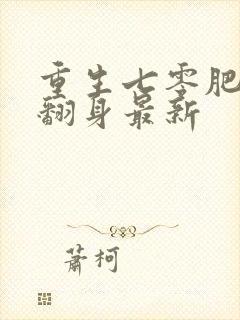 重生七零肥
翻身最新
萧柯